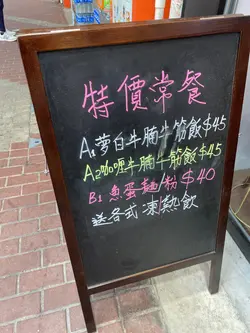 特價常餐
A1蘿白牛腩牛筋飯$45
A2咖喱牛腩牛筋飯$45
B1魚蛋麵/粉$40
送各式凍熱飲